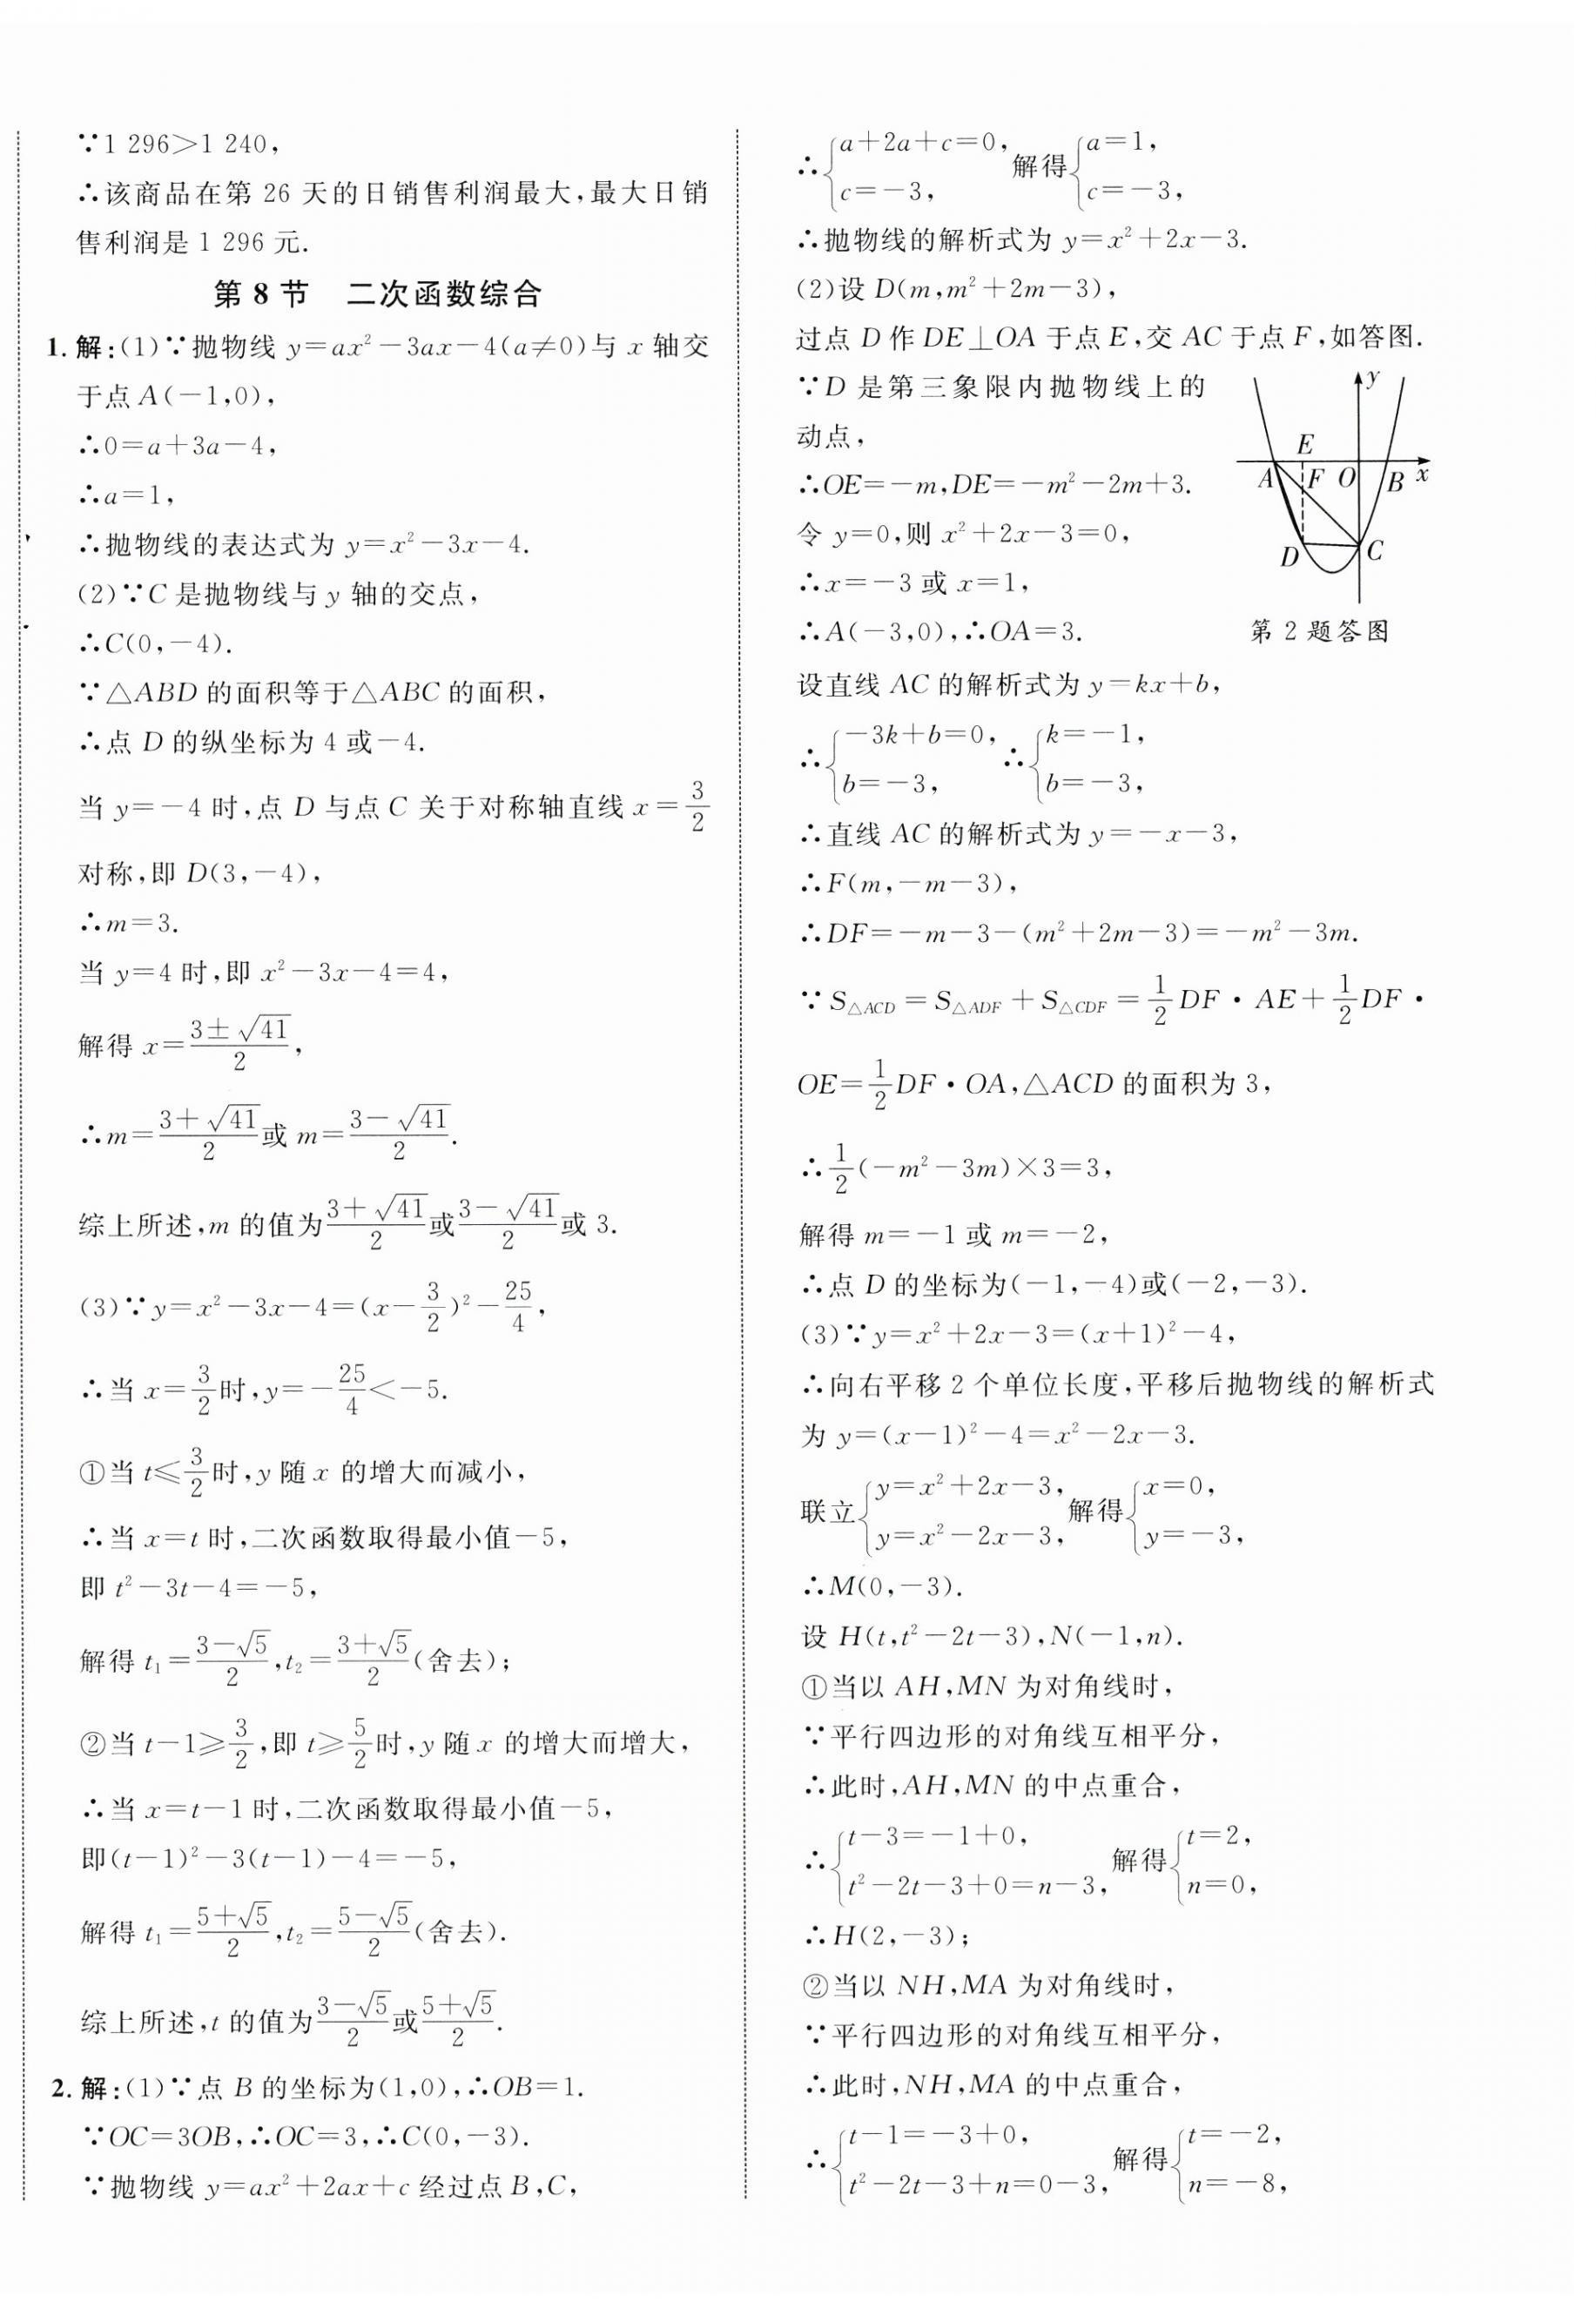 ∵1 296>1 240,
∴该商品在第 26 天的日销售利润最大,最大日销
售利润是 1 296 元.
第 8 节 二次函数综合
1. 解:(1)∵抛物线 y=ax²-3ax-4(a≠0)与 x 轴交
于点 A(-1,0),
∴0=a+3a-4,
∴a=1,
∴抛物线的表达式为 y=x²-3x-4.
(2)∵C 是抛物线与 y 轴的交点,
∴C(0,-4).
∵△ABD 的面积等于△ABC 的面积,
∴点 D 的纵坐标为 4 或-4.
当 y=-4 时,点 D 与点 C 关于对称轴直线 x=3/2
对称,即 D(3,-4),
∴m=3.
当 y=4 时,即 x²-3x-4=4,
解得 x=(3±√41)/2,
∴m=(3+√41)/2或 m=(3-√41)/2.
综上所述,m 的值为(3+√41)/2或(3-√41)/2或 3.
(3)∵y=x²-3x-4=(x-3/2)²-25/4,
∴当 x=3/2时,y=-25/4<-5.
①当 t≤3/2时,y 随 x 的增大而减小,
∴当 x=t 时,二次函数取得最小值-5,
即 t²-3t-4=-5,
解得 t₁=(3-√5)/2,t₂=(3+√5)/2(舍去);
②当 t-1≥3/2,即 t≥5/2时,y 随 x 的增大而增大,
∴当 x=t-1 时,二次函数取得最小值-5,
即(t-1)²-3(t-1)-4=-5,
解得 t₁=(5+√5)/2,t₂=(5-√5)/2(舍去).
综上所述,t 的值为(3-√5)/2或(5+√5)/2.
2. 解:(1)∵点 B 的坐标为(1,0),∴OB=1.
∵OC=3OB,∴OC=3,∴C(0,-3).
∵抛物线 y=ax²+2ax+c 经过点 B,C,
∴{a+2a+c=0, c=-3, 解得{a=1, c=-3,
∴抛物线的解析式为 y=x²+2x-3.
(2)设 D(m,m²+2m-3),
过点 D 作 DE⊥OA 于点 E,交 AC 于点 F,如答图.
∵D 是第三象限内抛物线上的
动点,
∴OE=-m,DE=-m²-2m+3.
令 y=0,则 x²+2x-3=0,
∴x=-3 或 x=1,
∴A(-3,0),∴OA=3.
y
E
A F O B x
D C
第 2 题答图
设直线 AC 的解析式为 y=kx+b,
∴{-3k+b=0, b=-3, ∴{k=-1, b=-3,
∴直线 AC 的解析式为 y=-x-3,
∴F(m,-m-3),
∴DF=-m-3-(m²+2m-3)=-m²-3m.
∵S△ACD=S△ADF+S△CDF=1/2DF·AE+1/2DF·
OE=1/2DF·OA,△ACD 的面积为 3,
∴1/2(-m²-3m)×3=3,
解得 m=-1 或 m=-2,
∴点 D 的坐标为(-1,-4)或(-2,-3).
(3)∵y=x²+2x-3=(x+1)²-4,
∴向右平移 2 个单位长度,平移后抛物线的解析式
为 y=(x-1)²-4=x²-2x-3.
联立{y=x²+2x-3, y=x²-2x-3, 解得{x=0, y=-3,
∴M(0,-3).
设 H(t,t²-2t-3),N(-1,n).
①当以 AH,MN 为对角线时,
∵平行四边形的对角线互相平分,
∴此时,AH,MN 的中点重合,
∴{t-3=-1+0, t²-2t-3+0=n-3, 解得{t=2, n=0,
∴H(2,-3);
②当以 NH,MA 为对角线时,
∵平行四边形的对角线互相平分,
∴此时,NH,MA 的中点重合,
∴{t-1=-3+0, t²-2t-3+n=0-3, 解得{t=-2, n=-8,